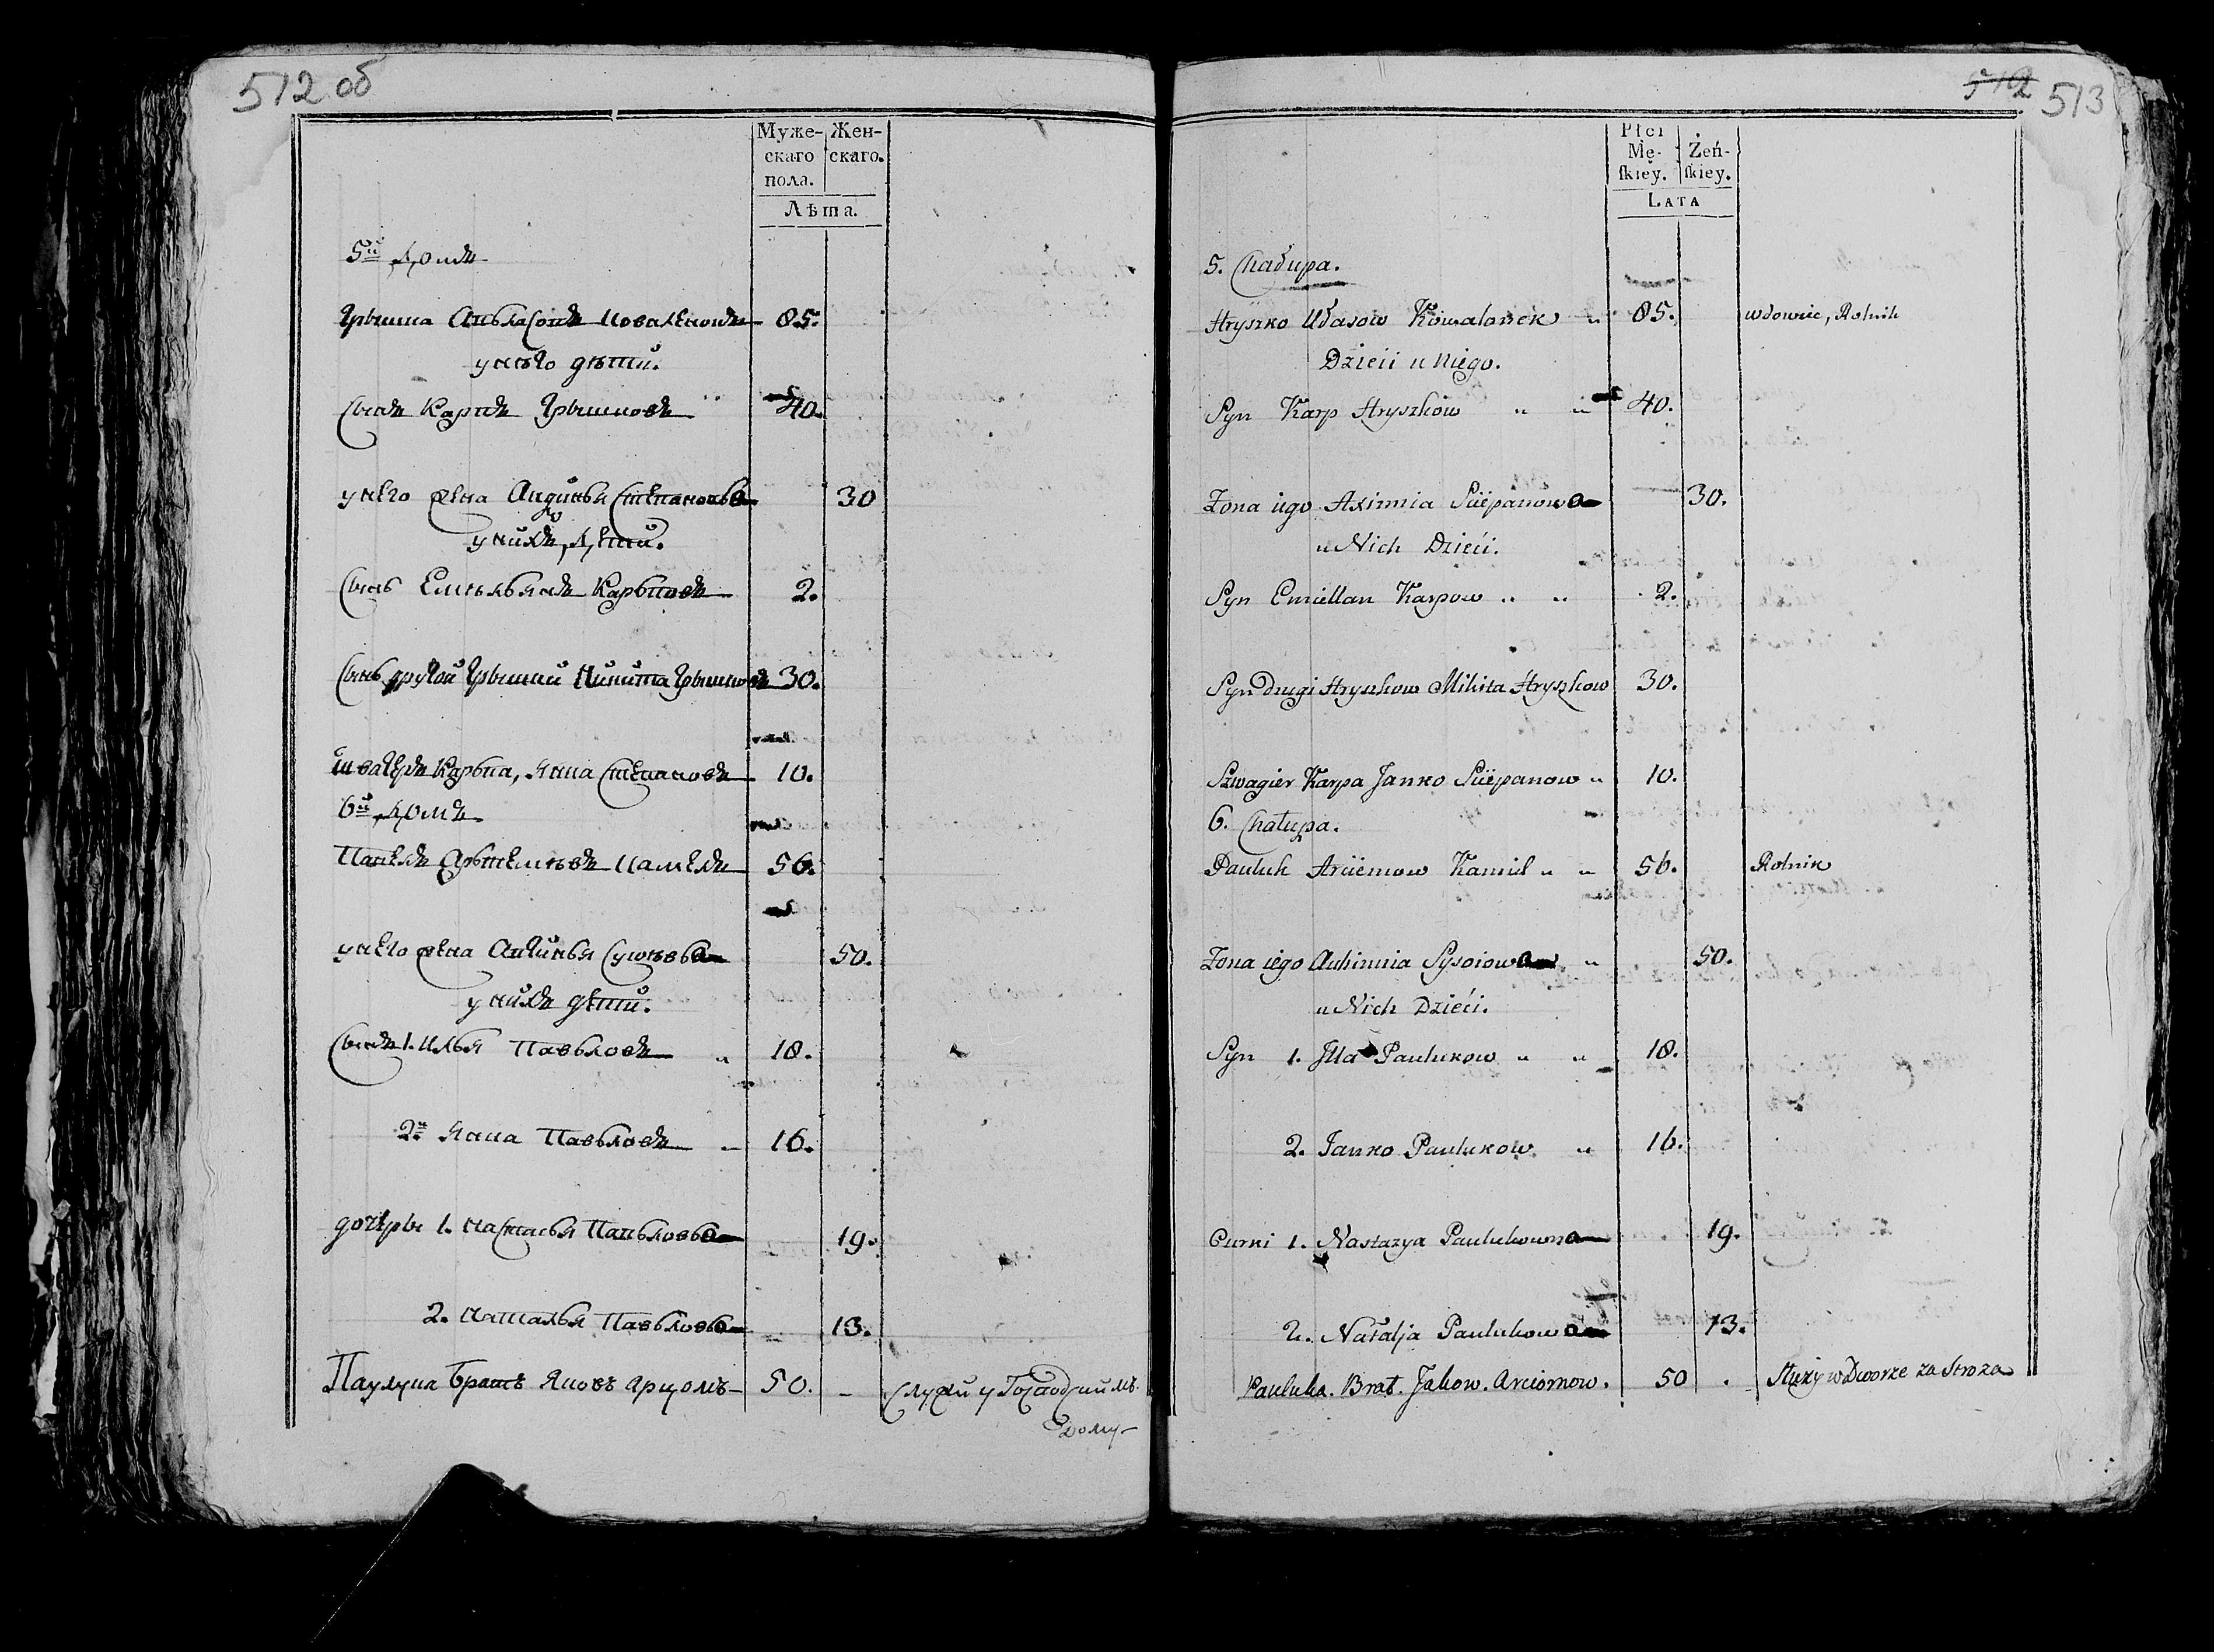 512 об
Муже- Жен-
скаго скаго.
пола.
Лѣта.
5й домъ
Грышка Коваленокъ 85.
у него дѣти.
Сынъ Карпъ Грышковъ 40.
у него жена Степановва 30
у нихъ дѣти.
Сынъ Емельянъ Карповъ 2.
Сынъ другой Грышки Никита Грышковъ 30.
швагеръ Карпа, Янка Степановъ 10.
6й домъ
Павелъ Артемьевъ Камель 56.
у него жена 50.
у нихъ дѣти.
Сынъ 1. Илья Павловъ „ 18.
2й Янка Павловъ 16.
дочеры 1. Настасья Павлова 19.
2. Наталья Павлова 13.
Паулука Братъ Яковъ Арцомъ 50. – служи у
дому
512 513
Płci
Mę- Żeń-
ſkiey. ſkiey.
LATA
5. Chałupa.
Hryszko Kowalonek „ 85. wdowiec, Rolnik
Dzieci u Niego.
Syn Karp Hryszkow „ „ 40.
Zona iego Axinnia Sciepanowa 30.
u Nich Dzieci.
Syn Emiellan Karpow „ „ 2.
Syn Drugi Hryszkow Mikita Hryszkow 30.
Szwagier Karpa Janko Sciepanow „ 10.
6. Chałupa.
Pauluk Arciemow Kamiel „ „ 56. Rolnik
Zona iego Auhinnia Sysoiowa „ 50.
u Nich Dzieci.
Syn 1. Jlla Paulukow „ „ 18.
2. Janko Paulukow „ 16.
Curki 1. Nastazya Paulukowna 19.
2. Natalja Paulukowa 13.
Pauluka. Brat. Jakow. Arciomow. 50 . Służy w Dworze za Stroza